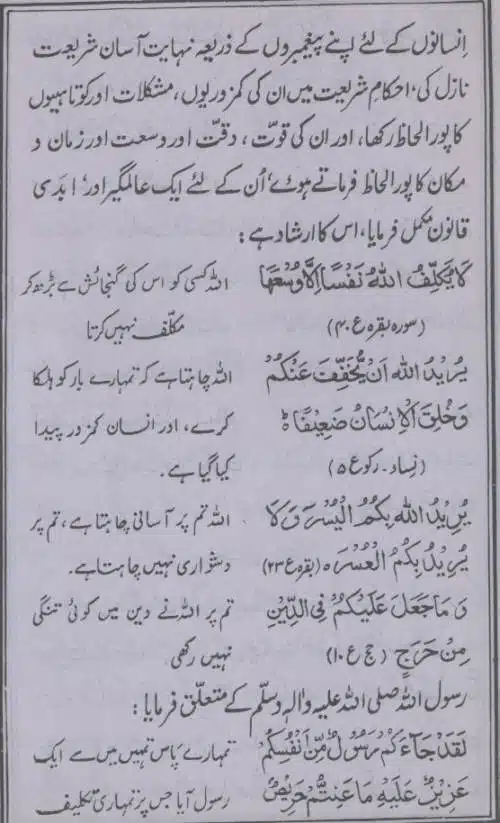 اِنسانوں کے لئے اپنے پیغمبروں کے ذریعہ نہایت آسان شریعت
نازل کی، احکام شریعت میں ان کی کمزوریوں، مشکلات اور کوتاہیوں
کا پورا لحاظ رکھا، اور ان کی قوت، دقت اور وسعت اور زمان و
مکان کا پورا لحاظ فرماتے ہوئے اُن کے لئے ایک عالمگیر اور اَبدی
قانون مکمل فرمایا، اس کا ارشاد ہے:
لَا يُكَلِّفُ اللهُ نَفْسًا اِلَّا وُسْعَهَا اللہ کسی کو اس کی گنجائش سے بڑھ کر
(سورہ بقرہ ع ۴۰) مکلّف نہیں کرتا
يُرِيْدُ اللهُ اَنْ يُّخَفِّفَ عَنْكُمْ اللہ چاہتا ہے کہ تمہارے بار کو ہلکا
وَخُلِقَ الْاِنْسَانُ ضَعِيْفًا ط کرے، اور انسان کمزور پیدا
(نساء۔ رکوع ۵) کیا گیا ہے۔
يُرِيْدُ اللهُ بِكُمُ الْيُسْرَ وَلَا اللہ تم پر آسانی چاہتا ہے، تم پر
يُرِيْدُ بِكُمُ الْعُسْرَ ہ (بقرہ ع ۲۳) دشواری نہیں چاہتا ہے۔
وَمَا جَعَلَ عَلَيْكُمْ فِي الدِّيْنِ تم پر اللہ نے دین میں کوئی تنگی
مِنْ حَرَجٍ (حج ع ۱۰) نہیں رکھی
رسول اللہ صلی اللہ علیہ واٰلہٖ وسلّم کے متعلق فرمایا:
لَقَدْ جَاءَكُمْ رَسُوْلٌ مِّنْ اَنْفُسِكُمْ تمہارے پاس تمہیں میں سے ایک
عَزِيْزٌ عَلَيْهِ مَا عَنِتُّمْ حَرِيْصٌ رسول آیا جس پر تمہاری تکلیف